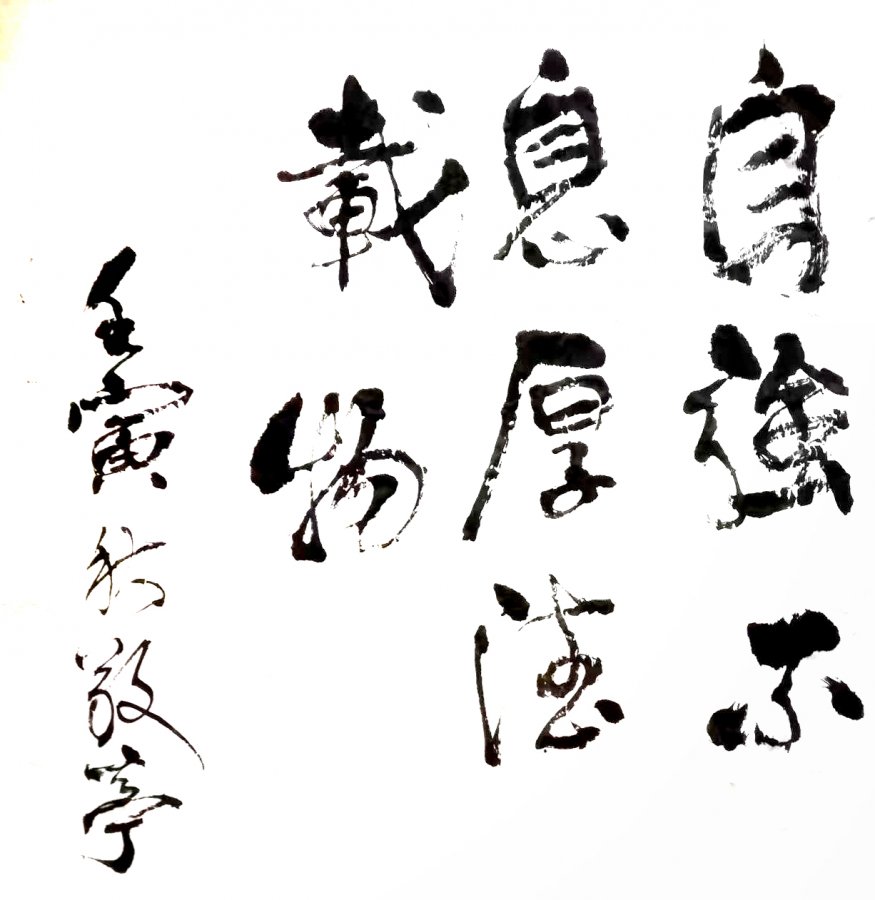 自強不
息厚德
載物
壬寅秋敬亭